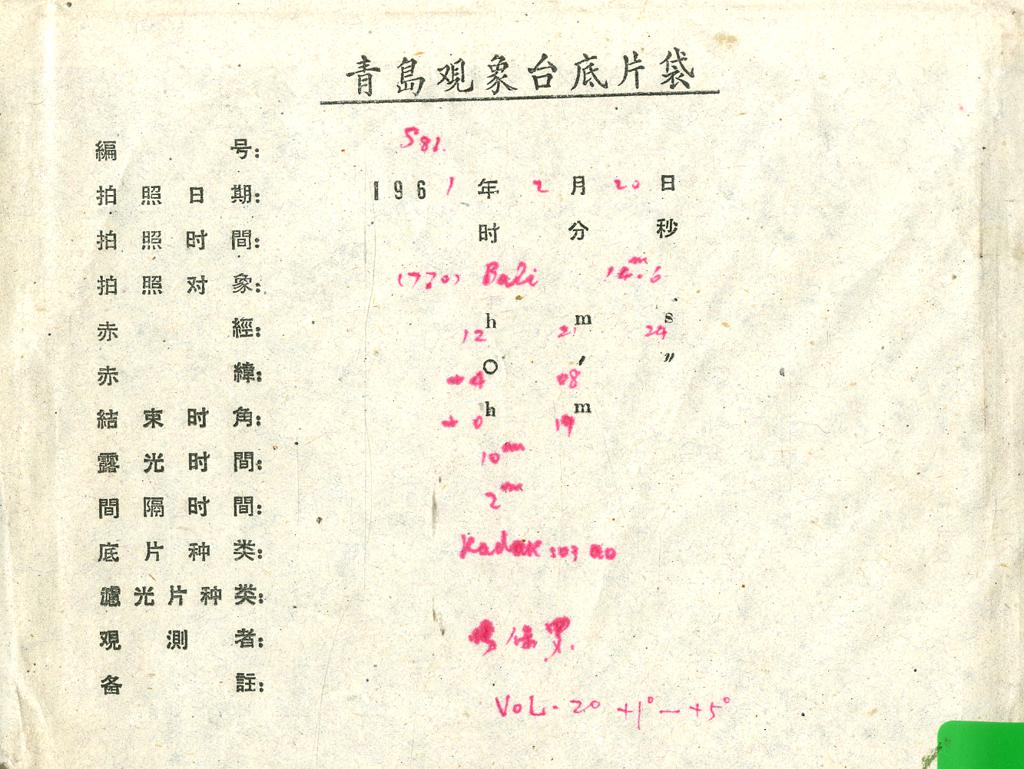 青島观象台底片袋
編 号: S81.
拍照日期: 1961年 2月 20日
拍照时間: 时 分 秒
拍照对象: (770) Bali 14.m6
赤 經: 12h 21m 24s
赤 緯: +4° 08′ ″
結束时角: +0h 19m
露光时間: 10m
間隔时間: 2m
底片种类: Kodak 103 aO
濾光片种类:
观测者:
备 註: VOL. 20 +1°—+5°